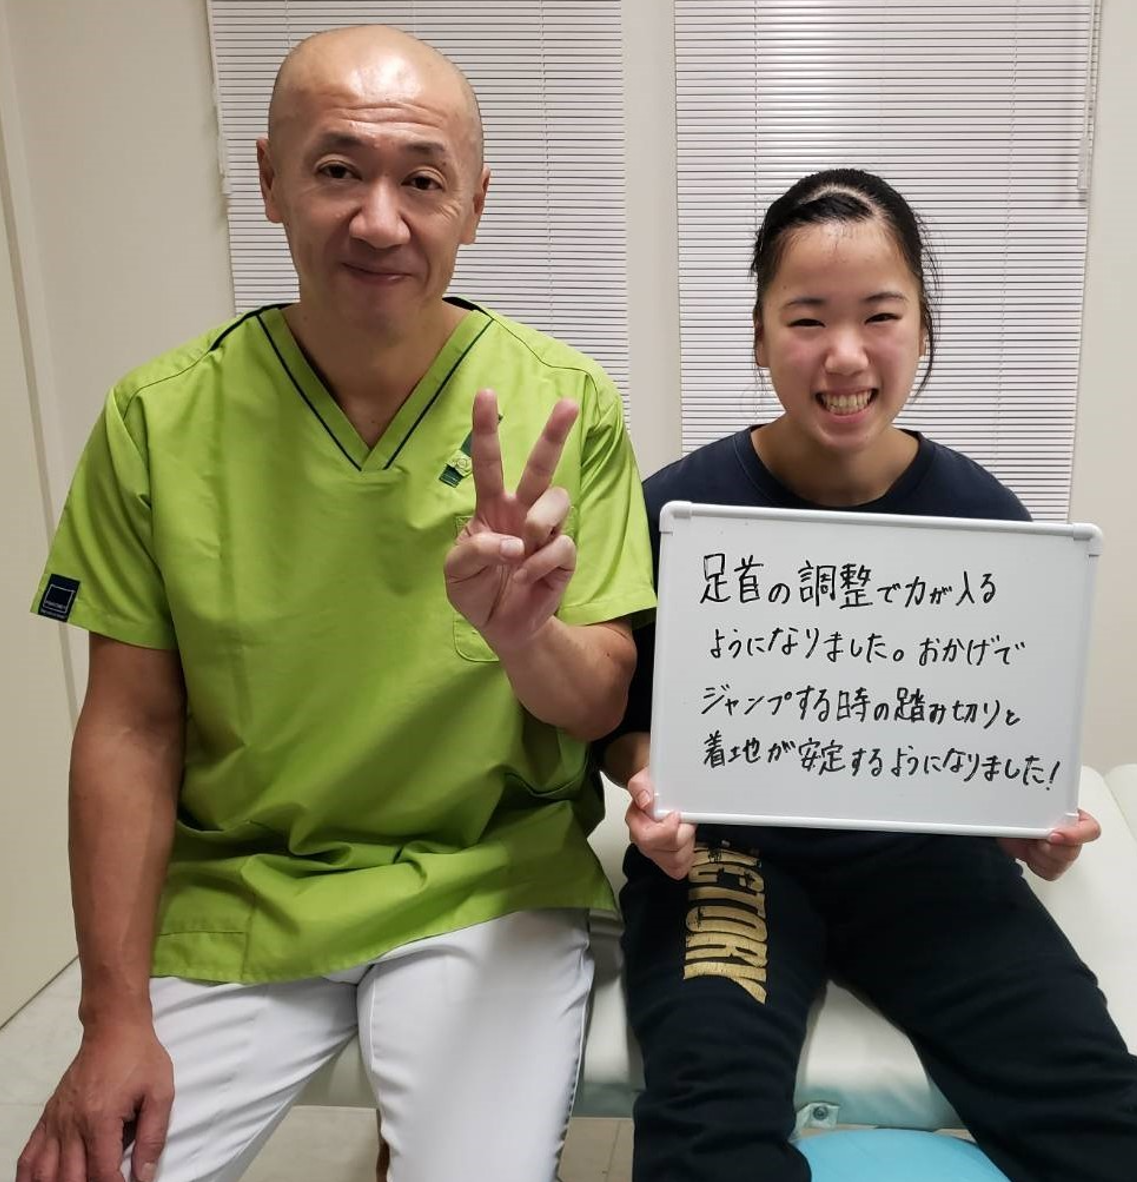 足首の調整で力が入る
ようになりました。おかげで
ジャンプする時の踏み切りと
着地が安定するようになりました!